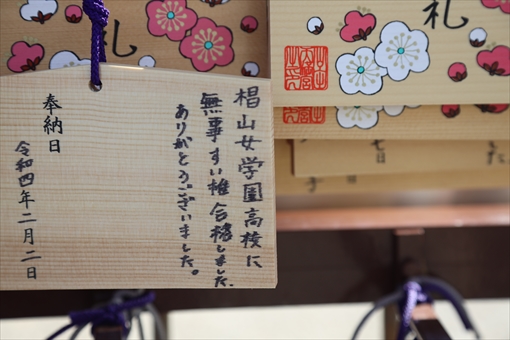 椙山女学園高校に
無事すい推合格しました。
ありがとうございました。
奉納日
令和四年二月二日
札
札
七日